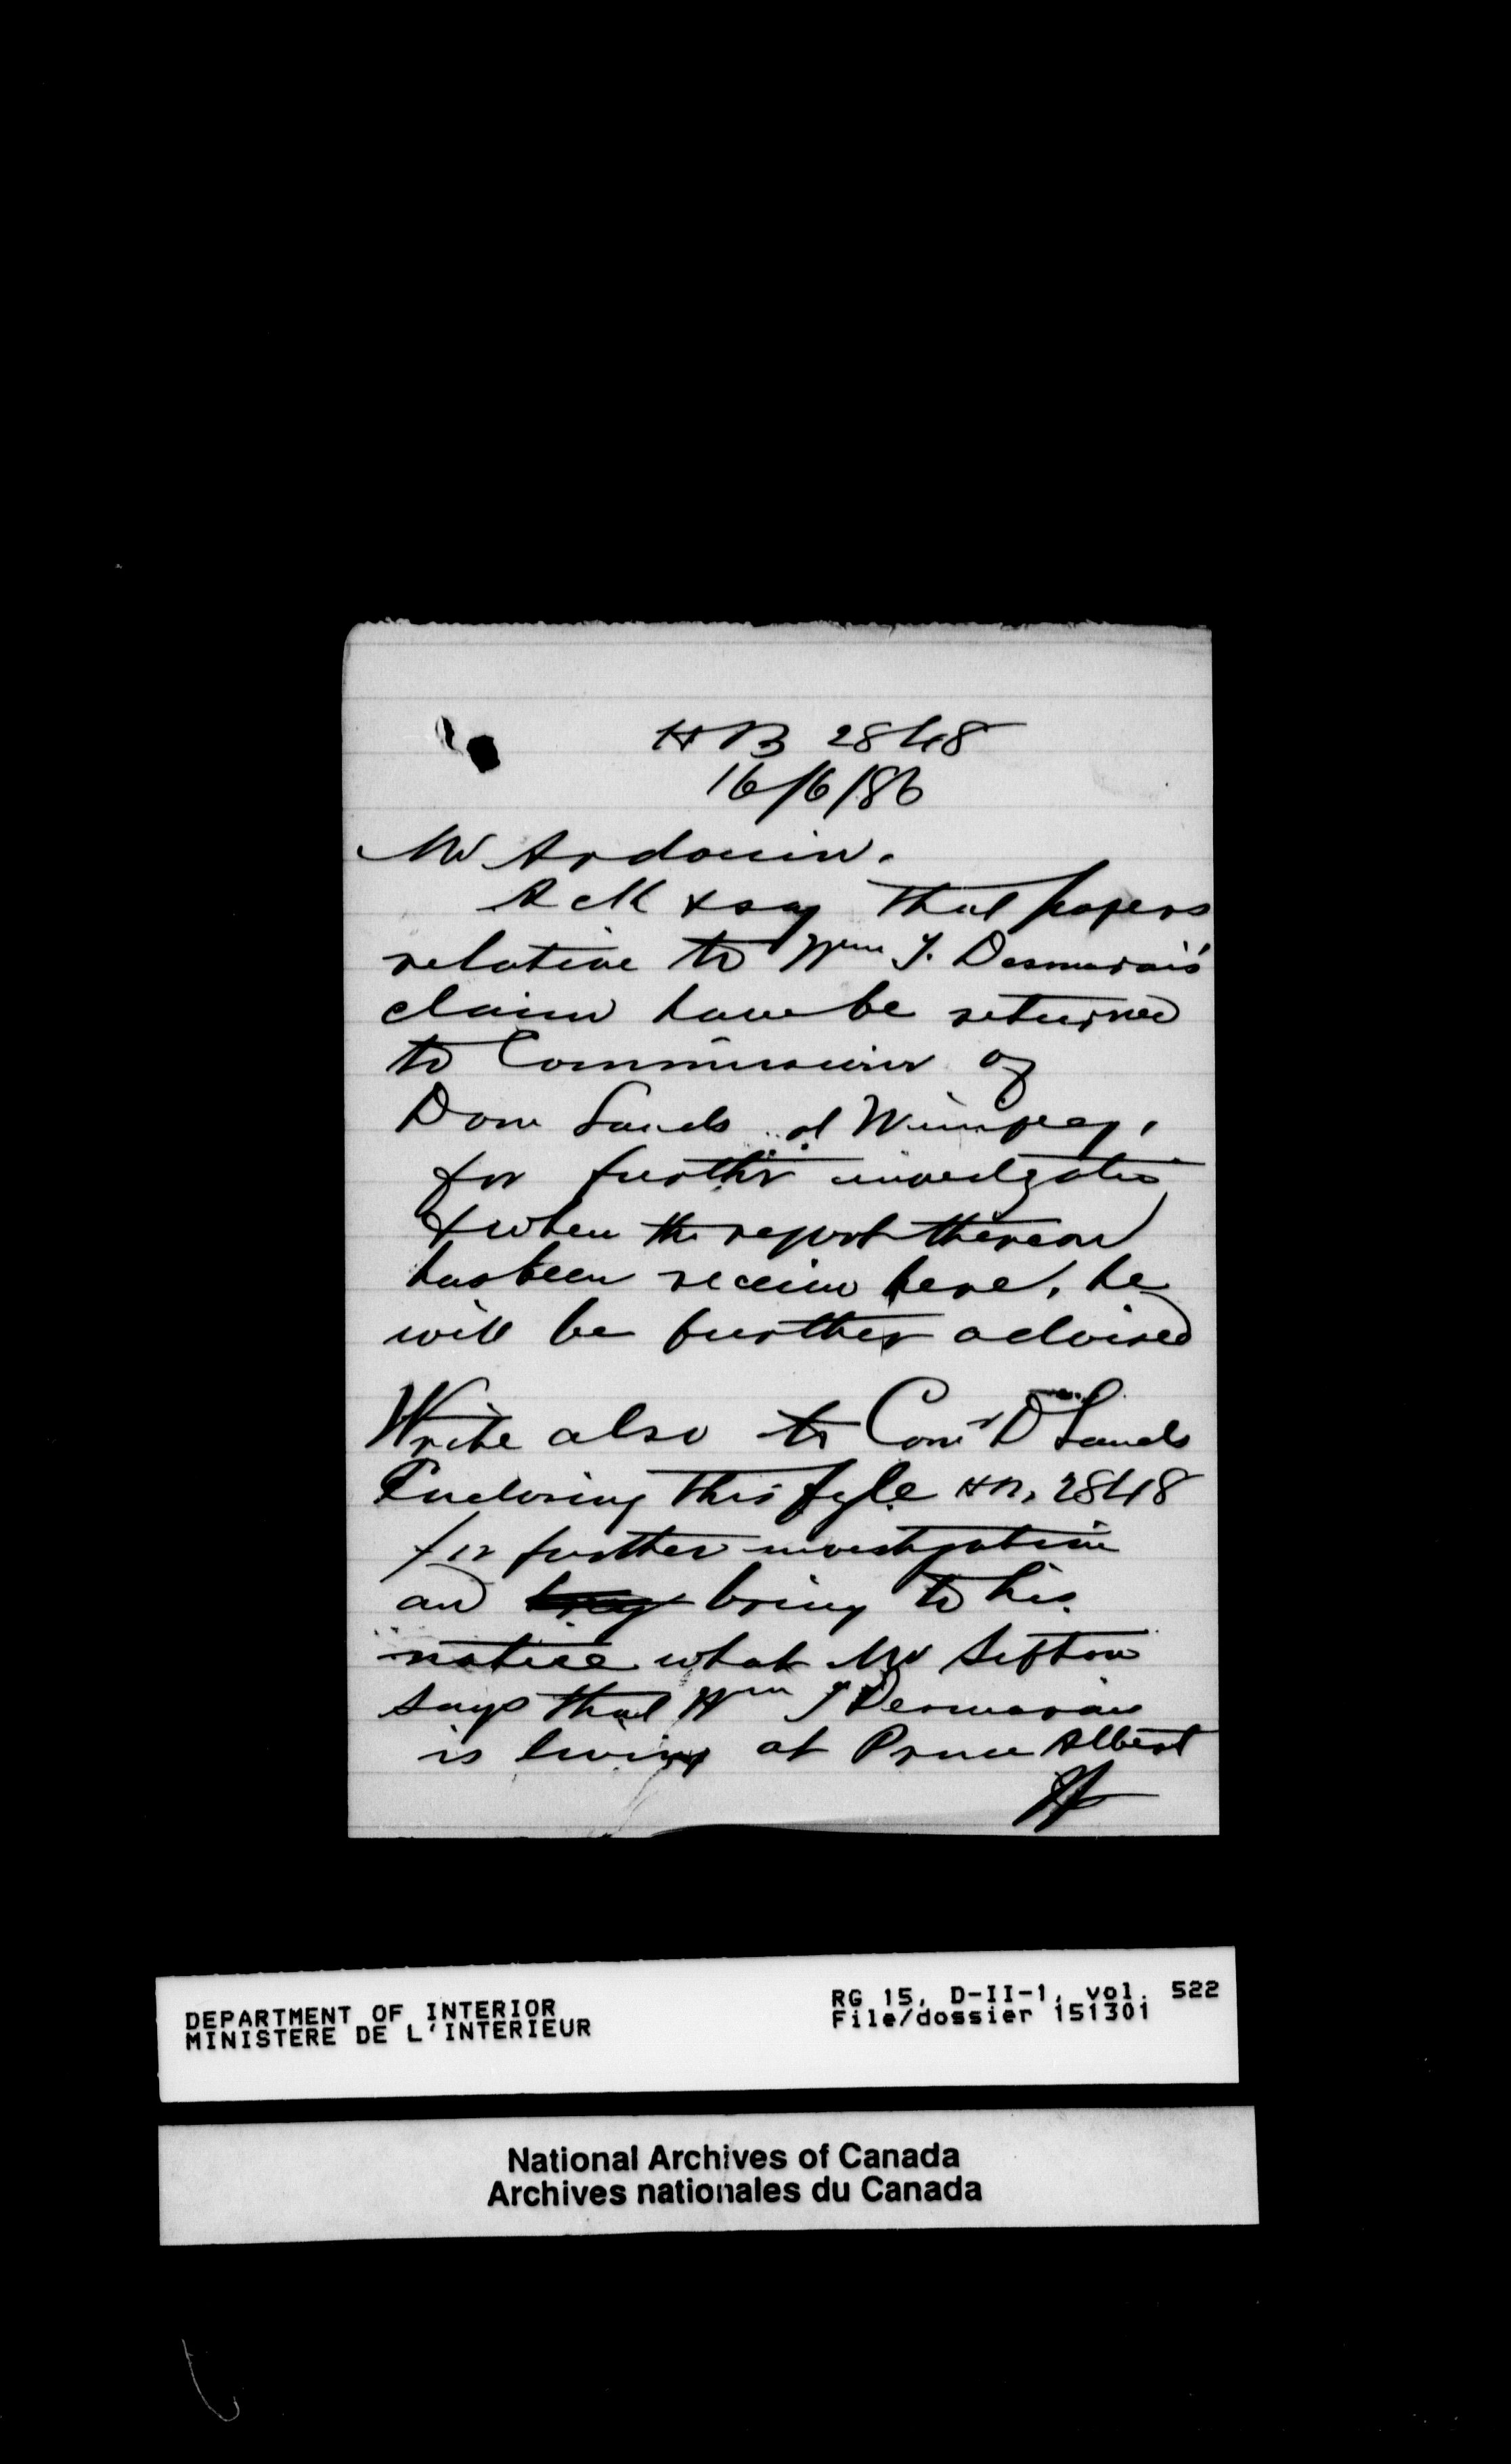 HB 2848
16/6/86
Mr Ardouin.
Ack & say that papers
relative to Wm J. Desmarais'
claim have be returned
to Commissioner of
Dom Lands at Winnipeg,
for further investigatio
& when the report thereon
has been receive here, he
will be further advised
Write also to Comr D Lands
Enclosing this fyle HB, 2848
for further investigation
and bring to his
notice what Mr Sifton
says that Wm J Desmarais
is living at Prince Albert
DEPARTMENT OF INTERIOR
MINISTERE DE L'INTERIEUR
RG 15, D-II-1, vol. 522
File/dossier 151301
National Archives of Canada
Archives nationales du Canada